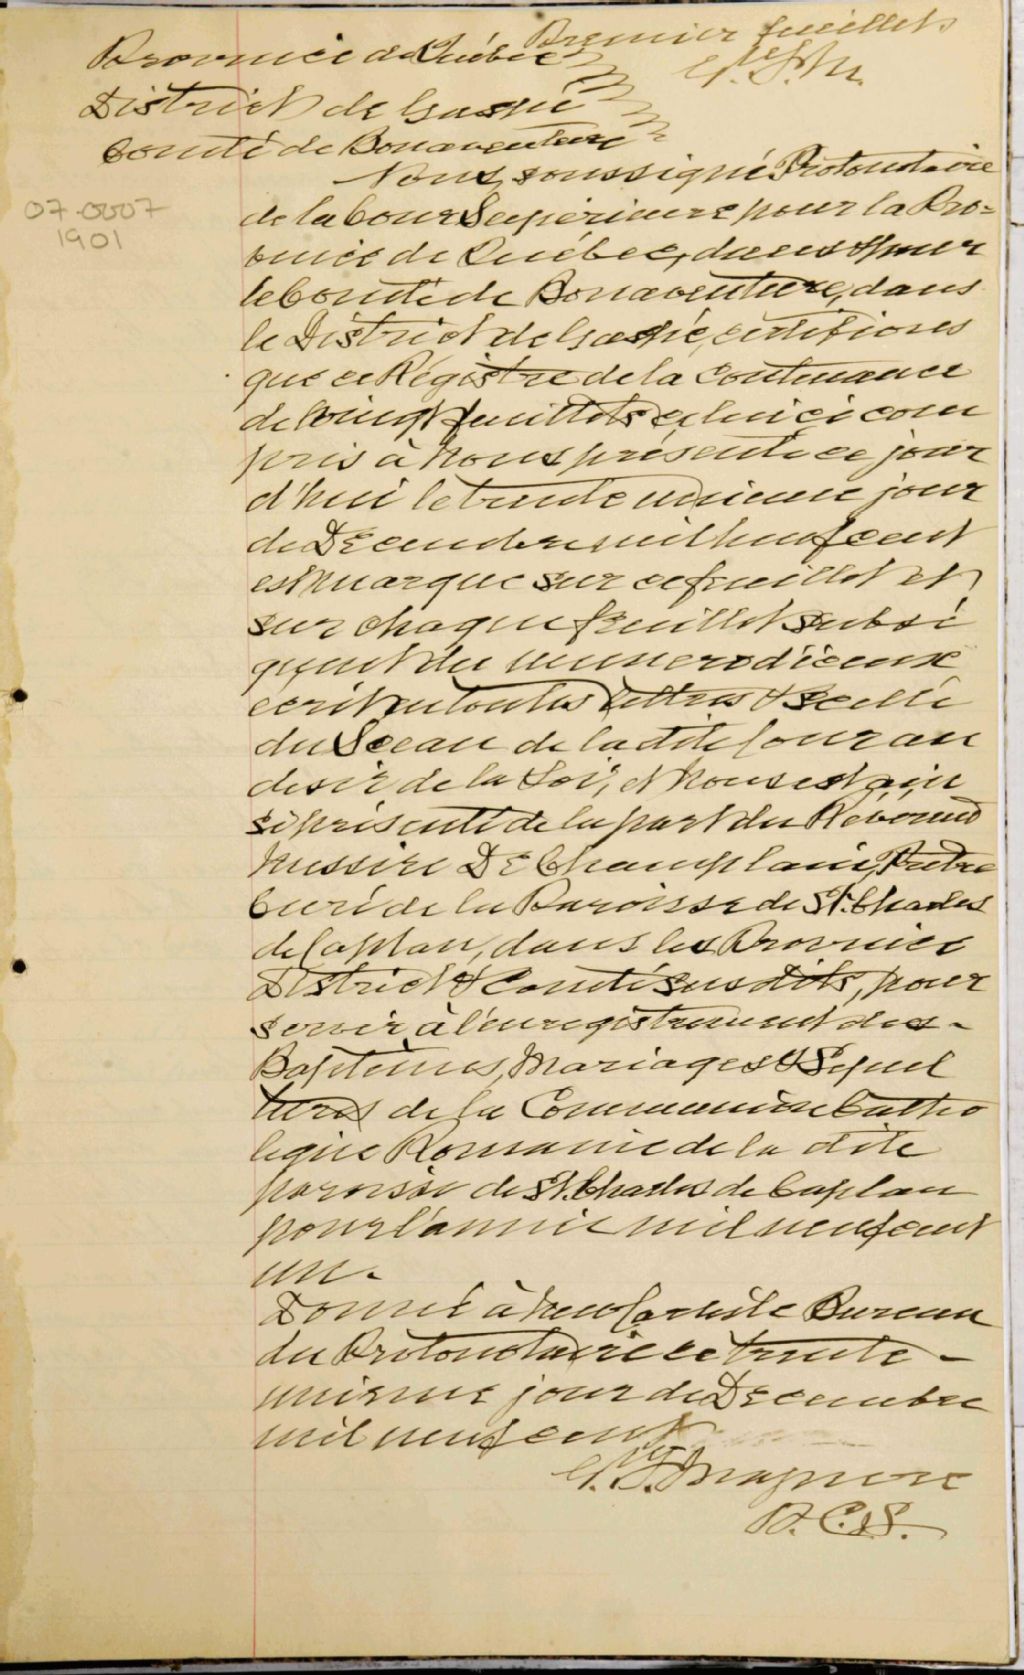 Premier feuillet
Province de Québec
District de Gaspé
Comté de Bonaventure
Nous, soussigné Protonotaire
de la Cour Supérieure pour la Pro=
vince de Québec, dans & pour
le Comté de Bonaventure, dans
le District de Gaspé, certifions
que ce Régistre de la contenance
de vingt feuillets celui ci com
pris à nous présenté ce jour
d'hui le trente unieme jour
de Décembre mil neuf cent
est marqué sur ce feuillet et
sur chaque feuillet subsé
quent du numero d'iceux
ecrit en toutes lettres & scellé
du Sceau de la dite Cour au
desir de la Loi, et nous est ain
si présenté de la part du Révérend
Messire De Champlain, Prêtre
Curé de la Paroisse de St. Charles
de Caplan, dans les Province
District & Comté susdits, pour
servir à l'enregistrement des -
Baptêmes, Mariages & Sepul
tures de la Communion Catho
lique Romaine de la dite
paroisse de St. Charles de Caplan
pour l'année mil neuf cent
un.
Donné à New Carlisle Bureau
du Protonotaire ce trente -
unieme jour de Décembre
mil neuf cent
P. C. S.
07-0007
1901